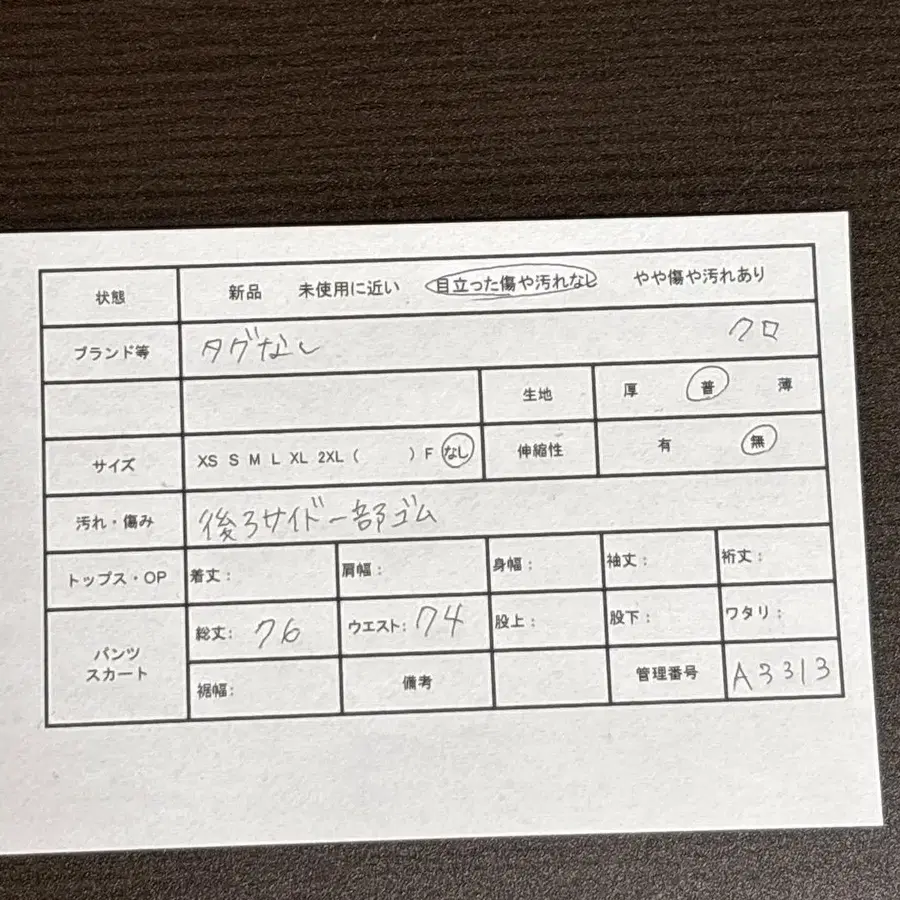 状態 新品 未使用に近い 目立った傷や汚れなし やや傷や汚れあり
ブランド等 タグなし クロ
生地 厚 普 薄
サイズ XS S M L XL 2XL ( ) F なし 伸縮性 有 無
汚れ・傷み 後ろサイド一部ゴム
トップス・OP 着丈: 肩幅: 身幅: 袖丈: 裄丈:
パンツ スカート 総丈: 76 ウエスト: 74 股上: 股下: ワタリ:
裾幅: 備考 管理番号 A3313